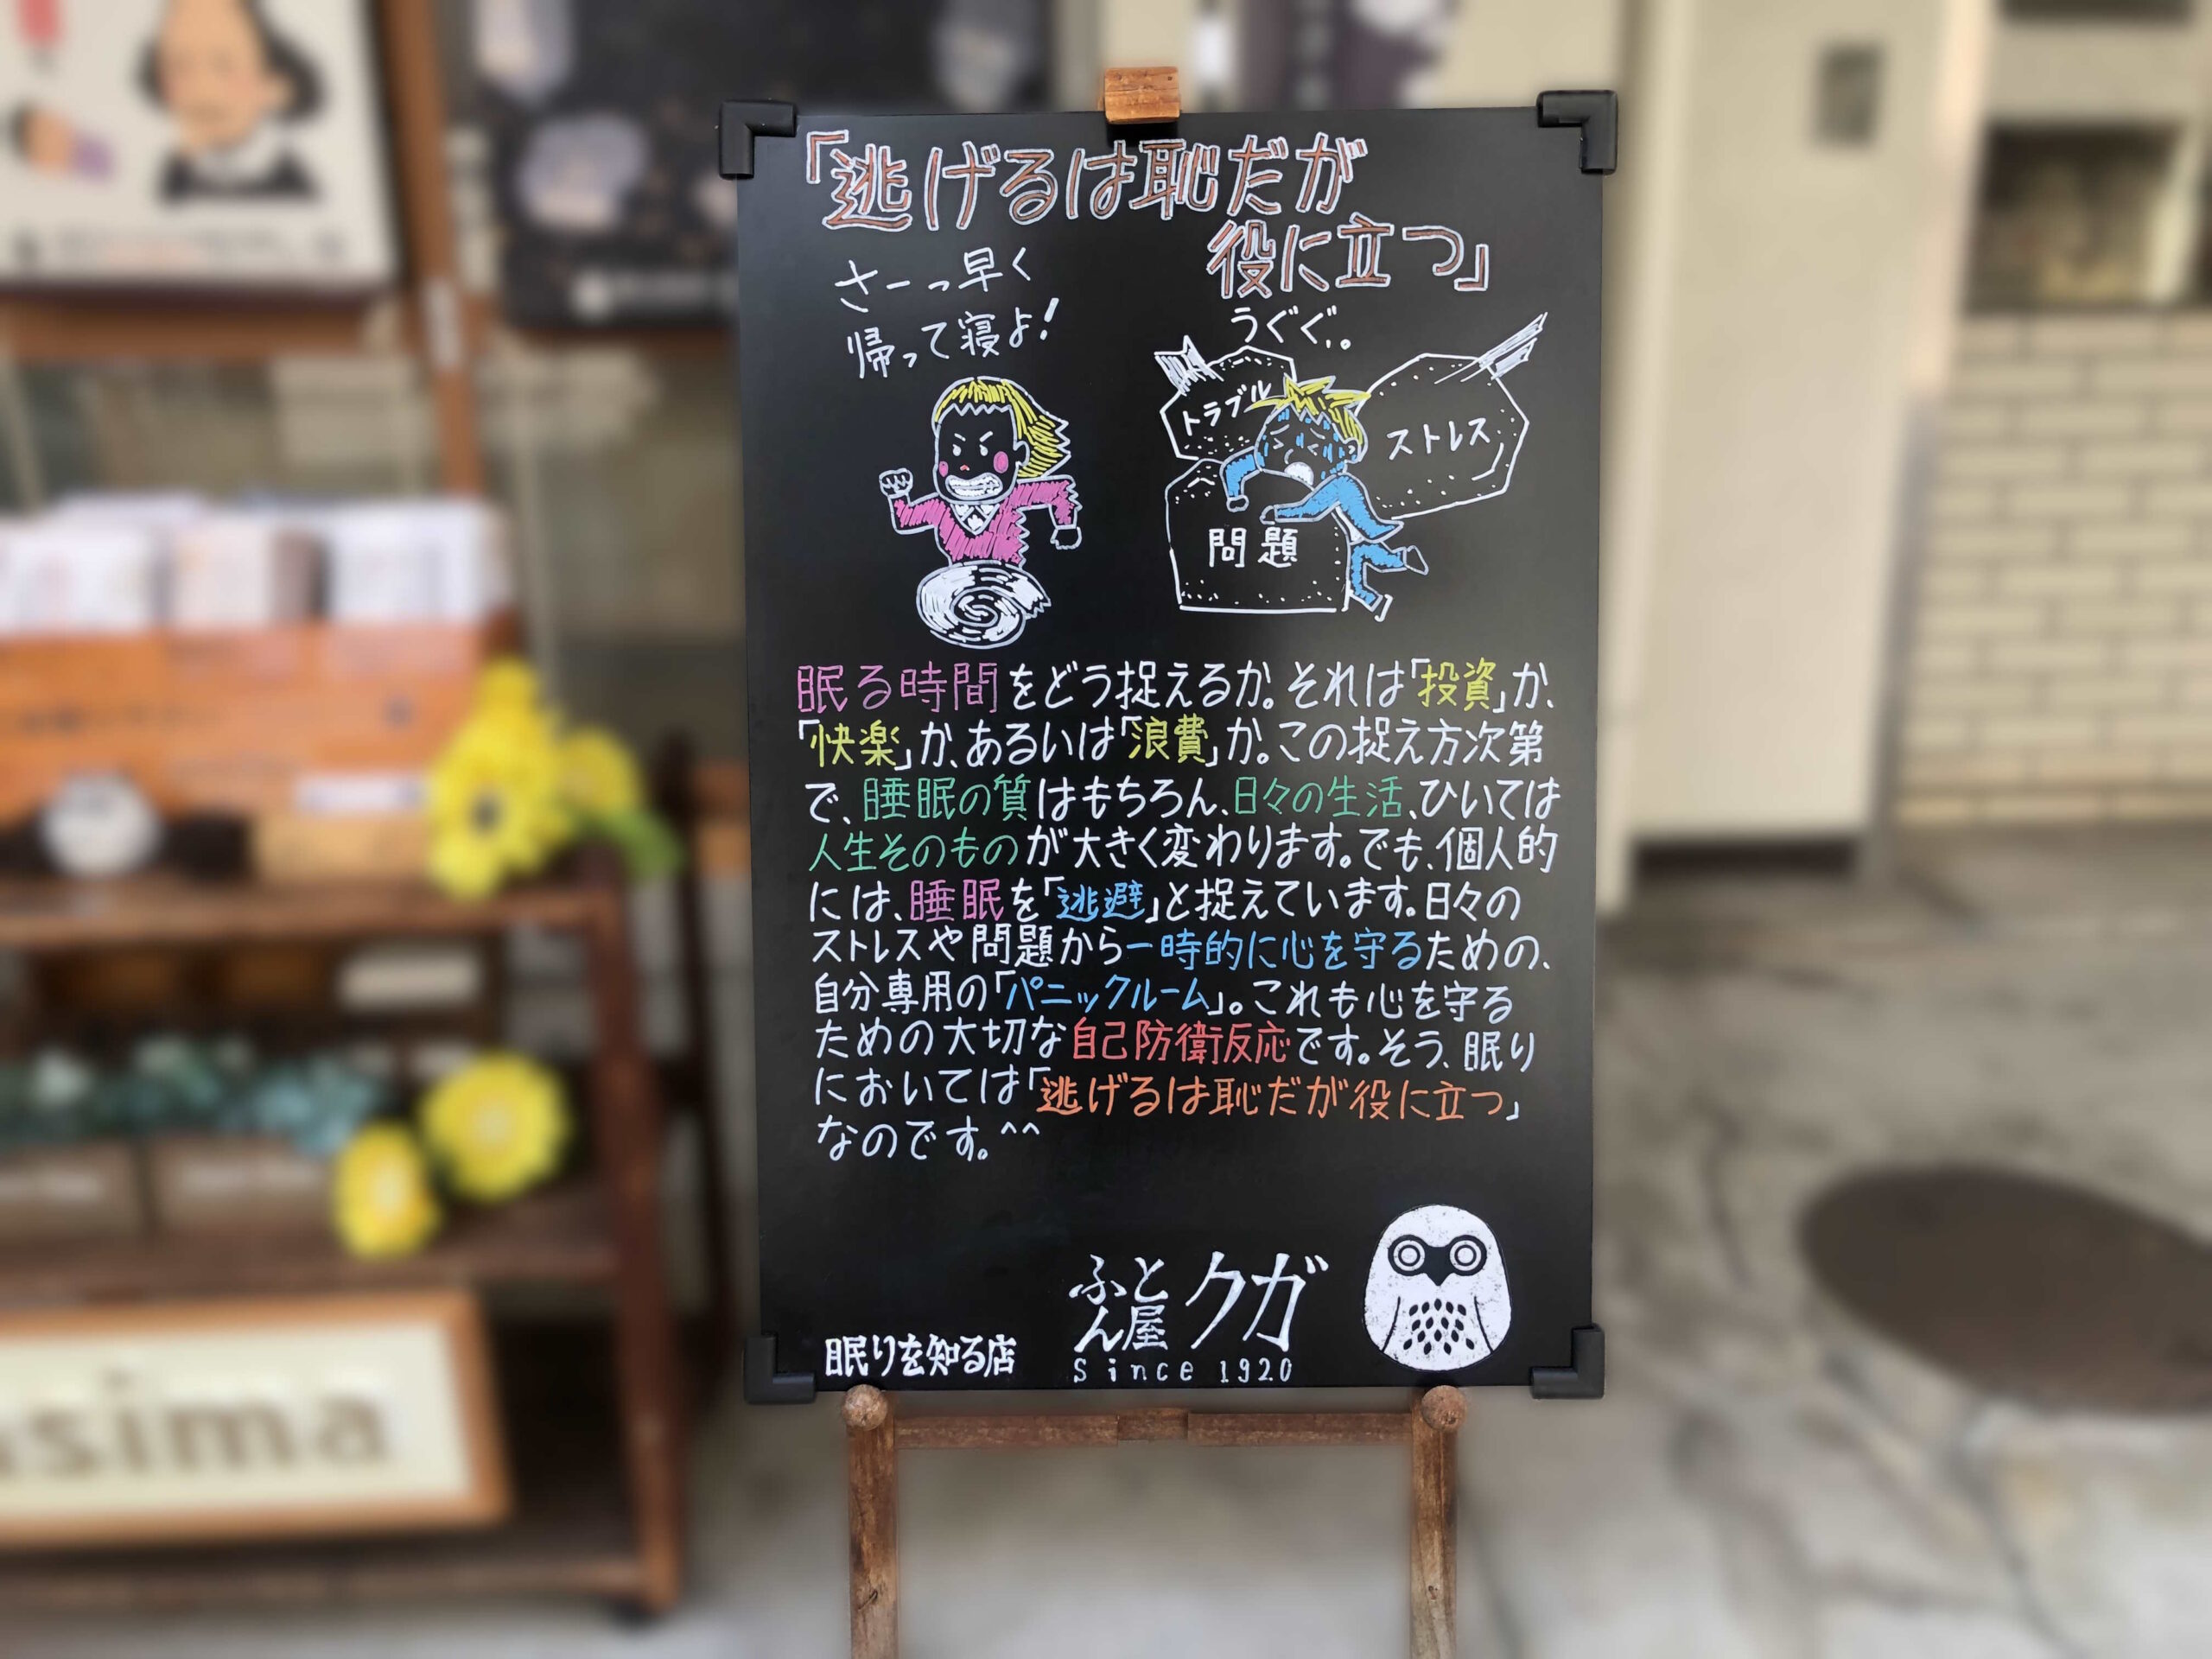 「逃げるは恥だが
役に立つ」
さーっ早く
帰って寝よ!
うぐぐ..。
トラブル
ストレス
問題
眠る時間をどう捉えるか。それは「投資」か、
「快楽」か、あるいは「浪費」か。この捉え方次第
で、睡眠の質はもちろん、日々の生活、ひいては
人生そのものが大きく変わります。でも、個人的
には、睡眠を「逃避」と捉えています。日々の
ストレスや問題から一時的に心を守るための、
自分専用の「パニックルーム」。これも心を守る
ための大切な自己防衛反応です。そう、眠り
においては「逃げるは恥だが役に立つ」
なのです。^^
眠りを知る店
ふとん屋クガ
Since 1920
sima